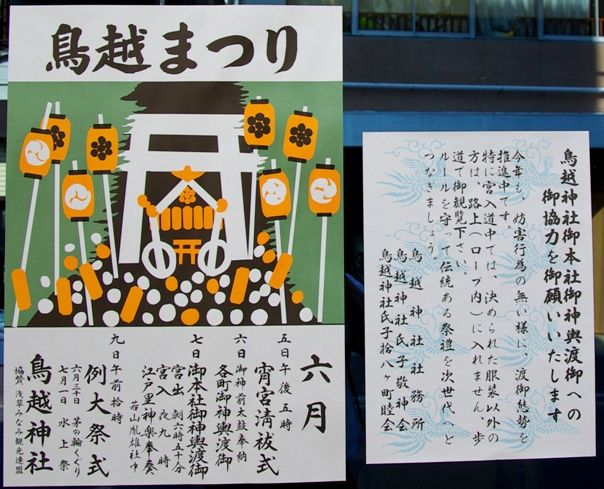 鳥越まつり
六月
五日午後五時
宵宮清祓式
六日 御神前太鼓奉納
各町御神輿渡御
七日 御本社御神輿渡御
宮出 朝六時三十分
宮入 夜九時
江戸里神楽奉奏
若山胤雄社中
九日午前拾時
例大祭式
六月三十日 茅の輪くぐり
七月一日 水上祭
鳥越神社
協賛 浅草みなみ観光連盟
鳥越神社御本社御神輿渡御への
御協力を御願いいたします
今年も、妨害行為の無い様に、渡御態勢を
推進中です。
特に宮入道中では、決められた服装以外の
方は、路上(ロープ内)に入れません。歩
道で御観覧下さい。
ルールを守って伝統ある祭禮を次世代へと
つなぎましょう。
鳥越神社社務所
鳥越神社氏子敬神会
鳥越神社氏子拾八ヶ町睦会